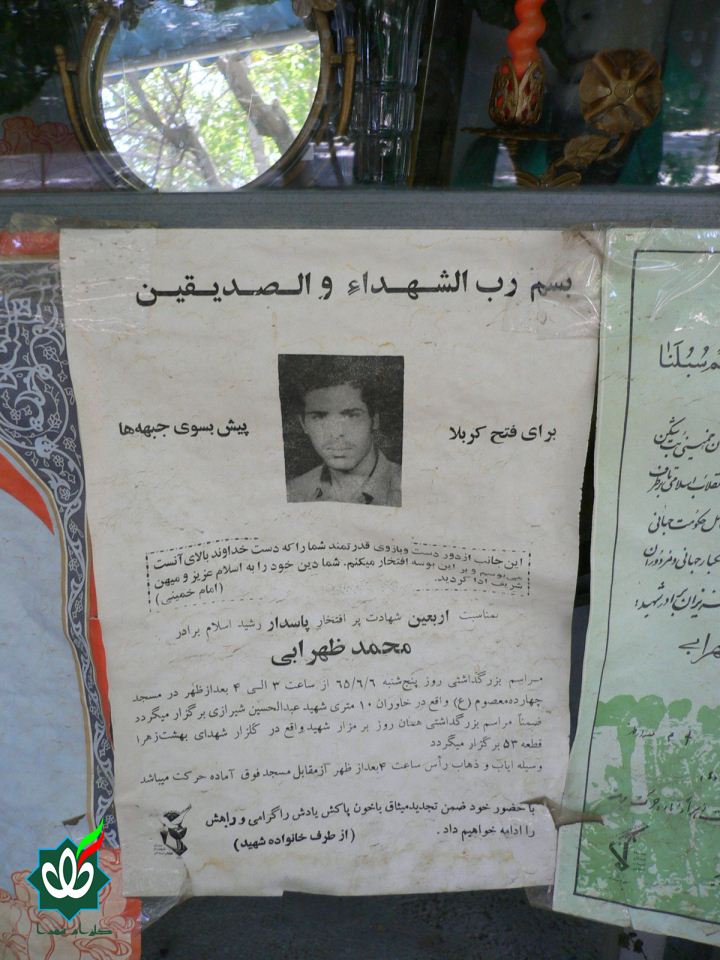 بسم رب الشهداءِ و الصدیقین
برای فتح کربلا
پیش بسوی جبهه‌ها
این جانب از دور دست و بازوی قدرتمند شما را که دست خداوند بالای آنست
می‌بوسم و بر این بوسه افتخار میکنم. شما دین خود را به اسلام عزیز و میهن
شریف ادا کردید.
(امام خمینی)
بمناسبت اربعین شهادت پر افتخار پاسدار رشید اسلام برادر
محمد ظهرابی
مراسم بزرگداشتی روز پنج‌شنبه ۶۵/۶/۶ از ساعت ۳ الی ۴ بعدازظهر در مسجد
چهارده‌معصوم (ع) واقع در خاوران ۱۰ متری شهید عبدالحسین شیرازی برگزار میگردد
ضمناً مراسم بزرگداشتی همان روز بر مزار شهید واقع در گلزار شهدای بهشت‌زهرا
قطعه ۵۳ برگزار میگردد
وسیله ایاب و ذهاب رأس ساعت ۴ بعداز ظهر از مقابل مسجد فوق آماده حرکت میباشد
با حضور خود ضمن تجدید میثاق با خون پاکش یادش را گرامی و راهش
را ادامه خواهیم داد.
(از طرف خانواده شهید)
سُبُلَنا
انقلاب اسلامی
حکومت جهانی
برادر شهید: